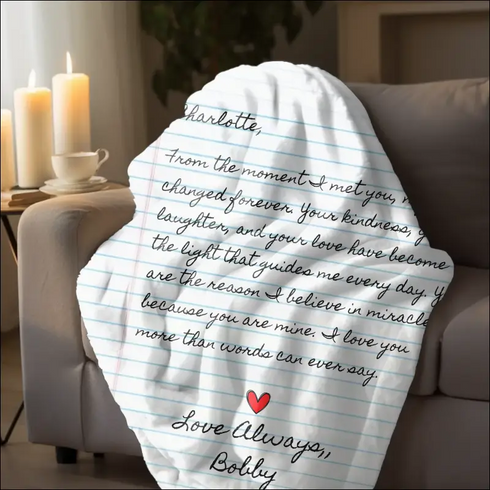 Charlotte,
From the moment I met you, m
changed forever. Your kindness, y
laughter, and your love have become
the light that guides me every day. Y
are the reason I believe in miracle
because you are mine. I love you
more than words can ever say.
Love Always,,
Bobby